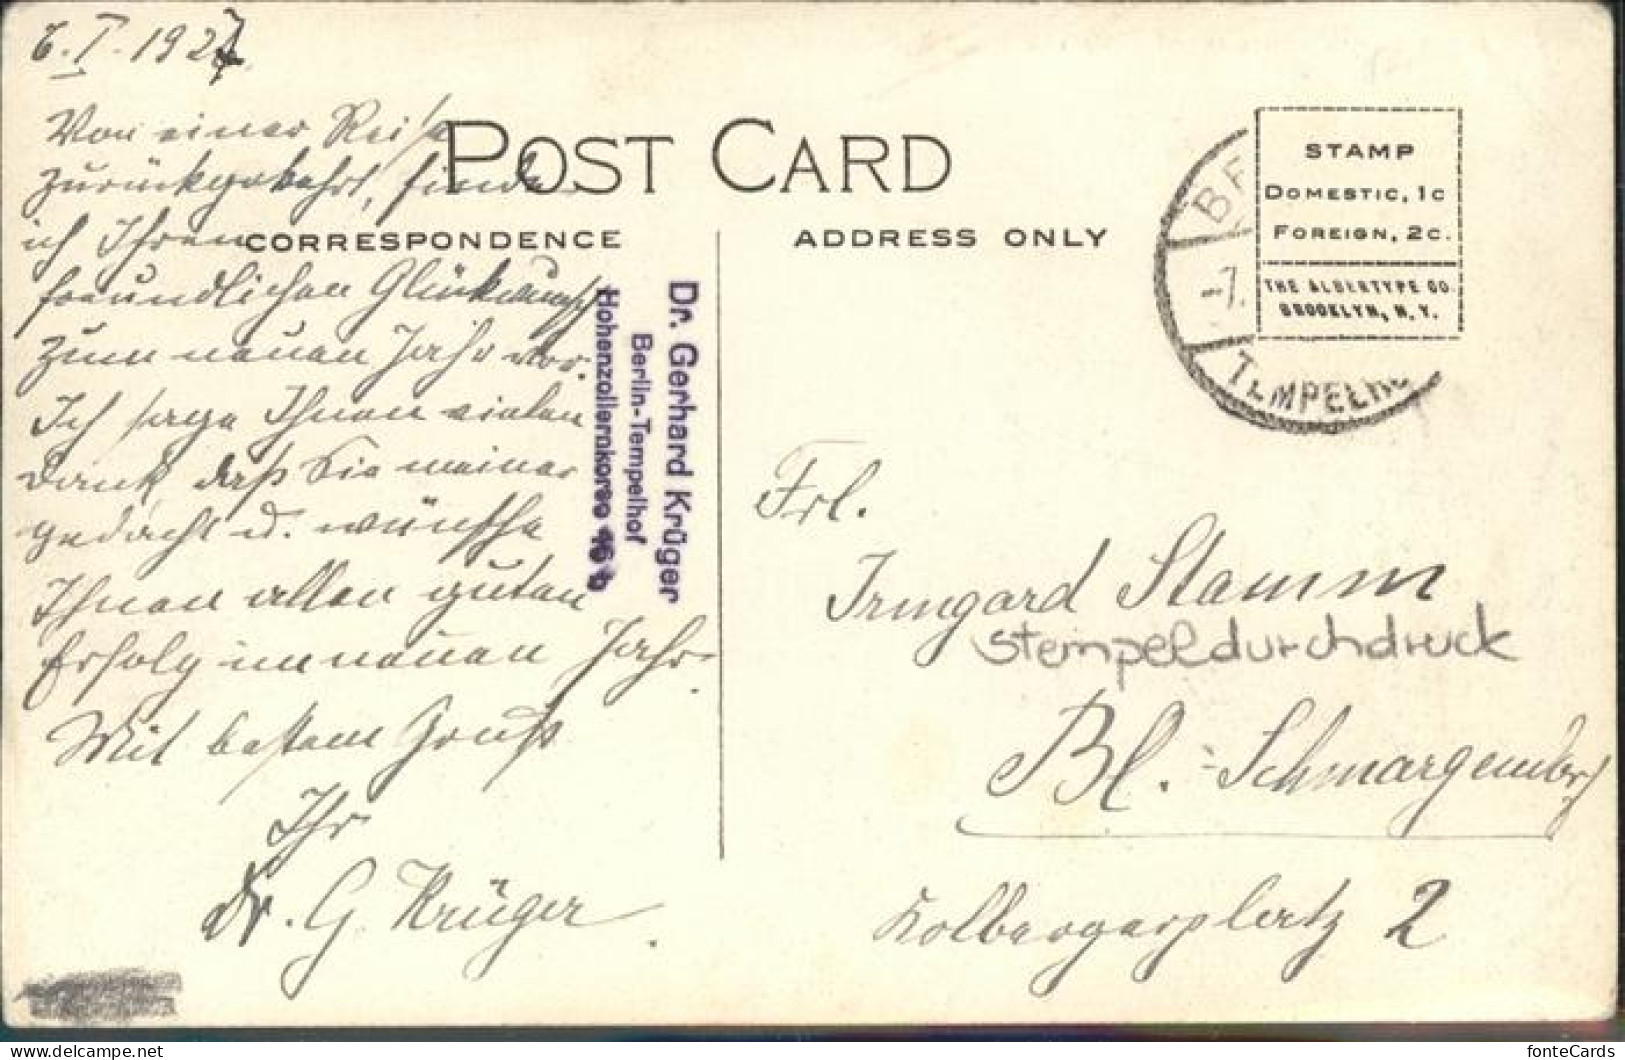 6.I.1927
Von einer Reise
zurückgekehrt, finde
ich Ihren
freundlichen Glückwunsch
zum neuen Jahr vor.
Ich sage Ihnen vielen
Dank, daß Sie meiner
gedacht u. wünsche
Ihnen allen guten
Erfolg im neuen Jahr.
Mit bestem Gruß
Ihr
Dr. G. Krüger.
POST CARD
CORRESPONDENCE
ADDRESS ONLY
Dr. Gerhard Krüger
Berlin-Tempelhof
Hohenzollernkorso 46 b
STAMP
DOMESTIC, 1C
FOREIGN, 2C.
THE ALBERTYPE CO.
BROOKLYN, N.Y.
BE
-7.
TEMPELHO
Frl.
Irmgard Stamm
Stempeldurchdruck
Bl.-Schmargendorf
Kolbergerplatz 2
fonteCards